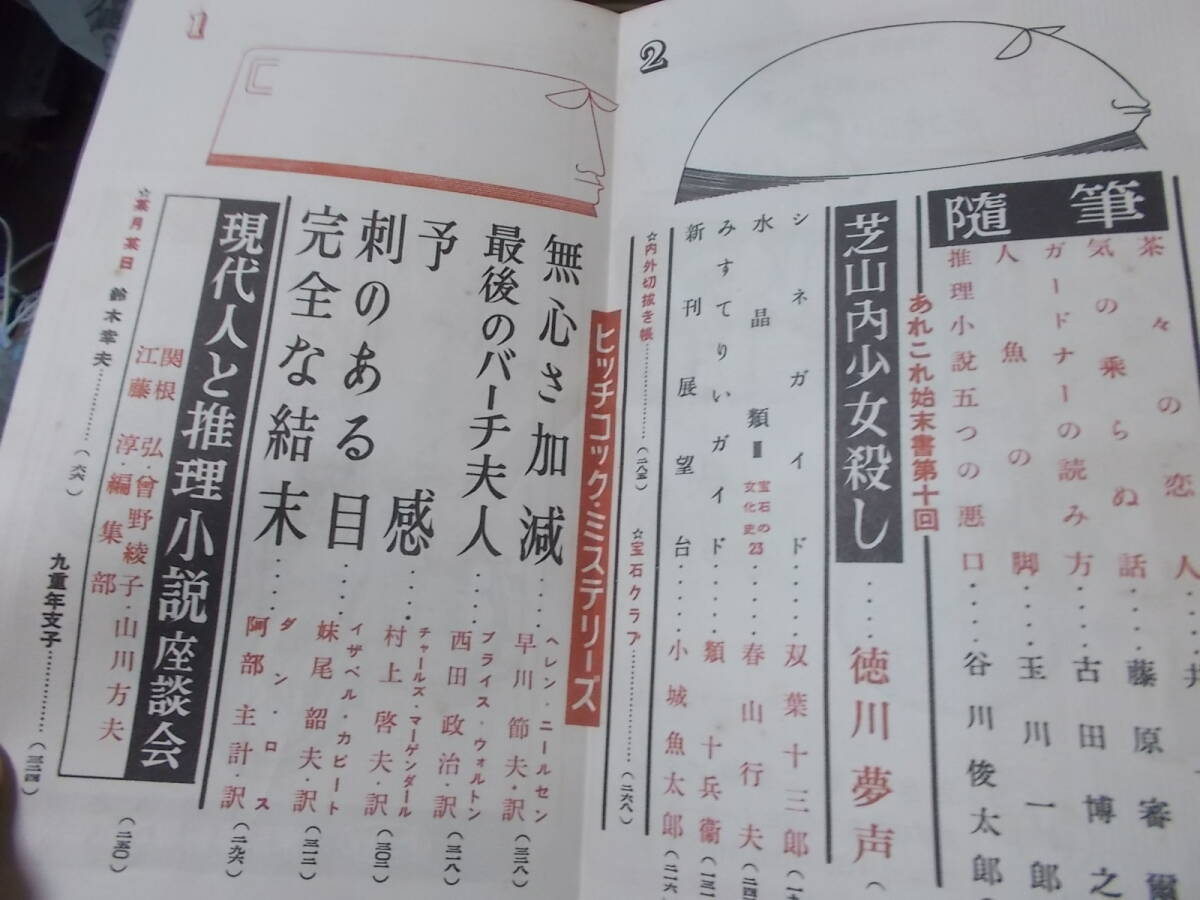 2
随筆
茶々の恋人
気の乗らぬ話‥‥藤原審爾
ガードナーの読み方‥‥古田博之
人魚の脚‥‥玉川一郎
推理小説五つの悪口‥‥谷川俊太郎
あれこれ始末書第十回
芝山内少女殺し‥‥徳川夢声
シネガイド‥‥双葉十三郎
水晶類Ⅲ 宝石の文化史23‥‥春山行夫
みすてりいガイド‥‥類十兵衛
新刊展望台‥‥小城魚太郎
☆内外切抜き帳‥‥(二八五)
☆宝石クラブ‥‥(二六八)
1
ヒッチコック・ミステリーズ
無心さ加減‥‥ヘレン・ニールセン 早川節夫・訳(三三八)
最後のバーチ夫人‥‥ブライス・ウォルトン 西田政治・訳(三一八)
予感‥‥チャールズ・マーゲンダール 村上啓夫・訳(三〇二)
刺のある目‥‥イザベル・カピート 妹尾韶夫・訳(三一二)
完全な結末‥‥ダン・ロス 阿部主計・訳(二九六)
現代人と推理小説座談会
関根弘・曾野綾子・山川方夫
江藤淳・編集部
(二五〇)
☆某月某日 鈴木幸夫‥‥(六六)
九重年支子‥‥(三二四)